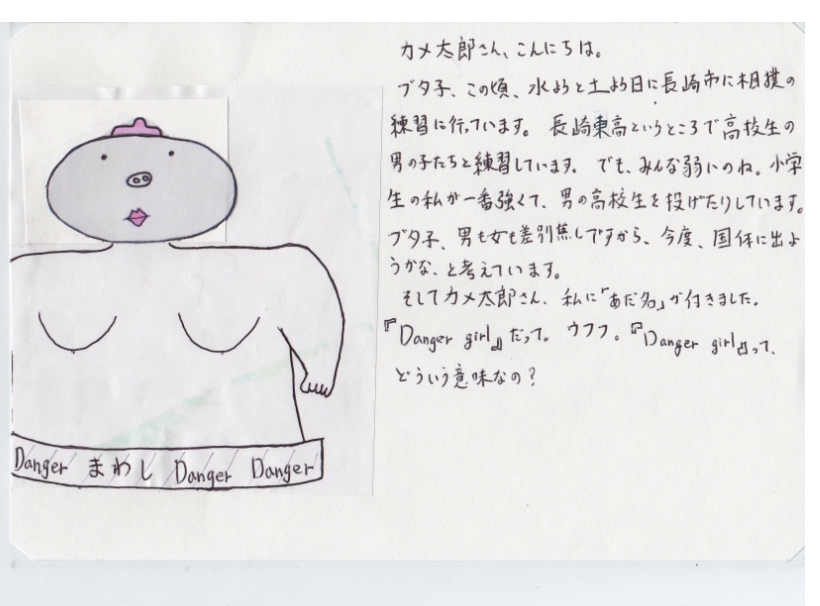 カメ太郎さん、こんにちは。
ブタ子、この頃、水よう と土よう日に長崎市に相撲の
練習に行っています。長崎東高というところで高校生の
男の子たちと練習しています。でも、みんな弱いのね。小学
生の私が一番強くて、男の高校生を投げたりしています。
ブタ子、男も女も差別無しですから、今度、国体に出よ
うかな、と考えています。
そしてカメ太郎さん、私に「あだ名」が付きました。
『Danger girl』だって。ウフフ。『Danger girl』って、
どういう意味なの?
Danger まわし Danger Danger